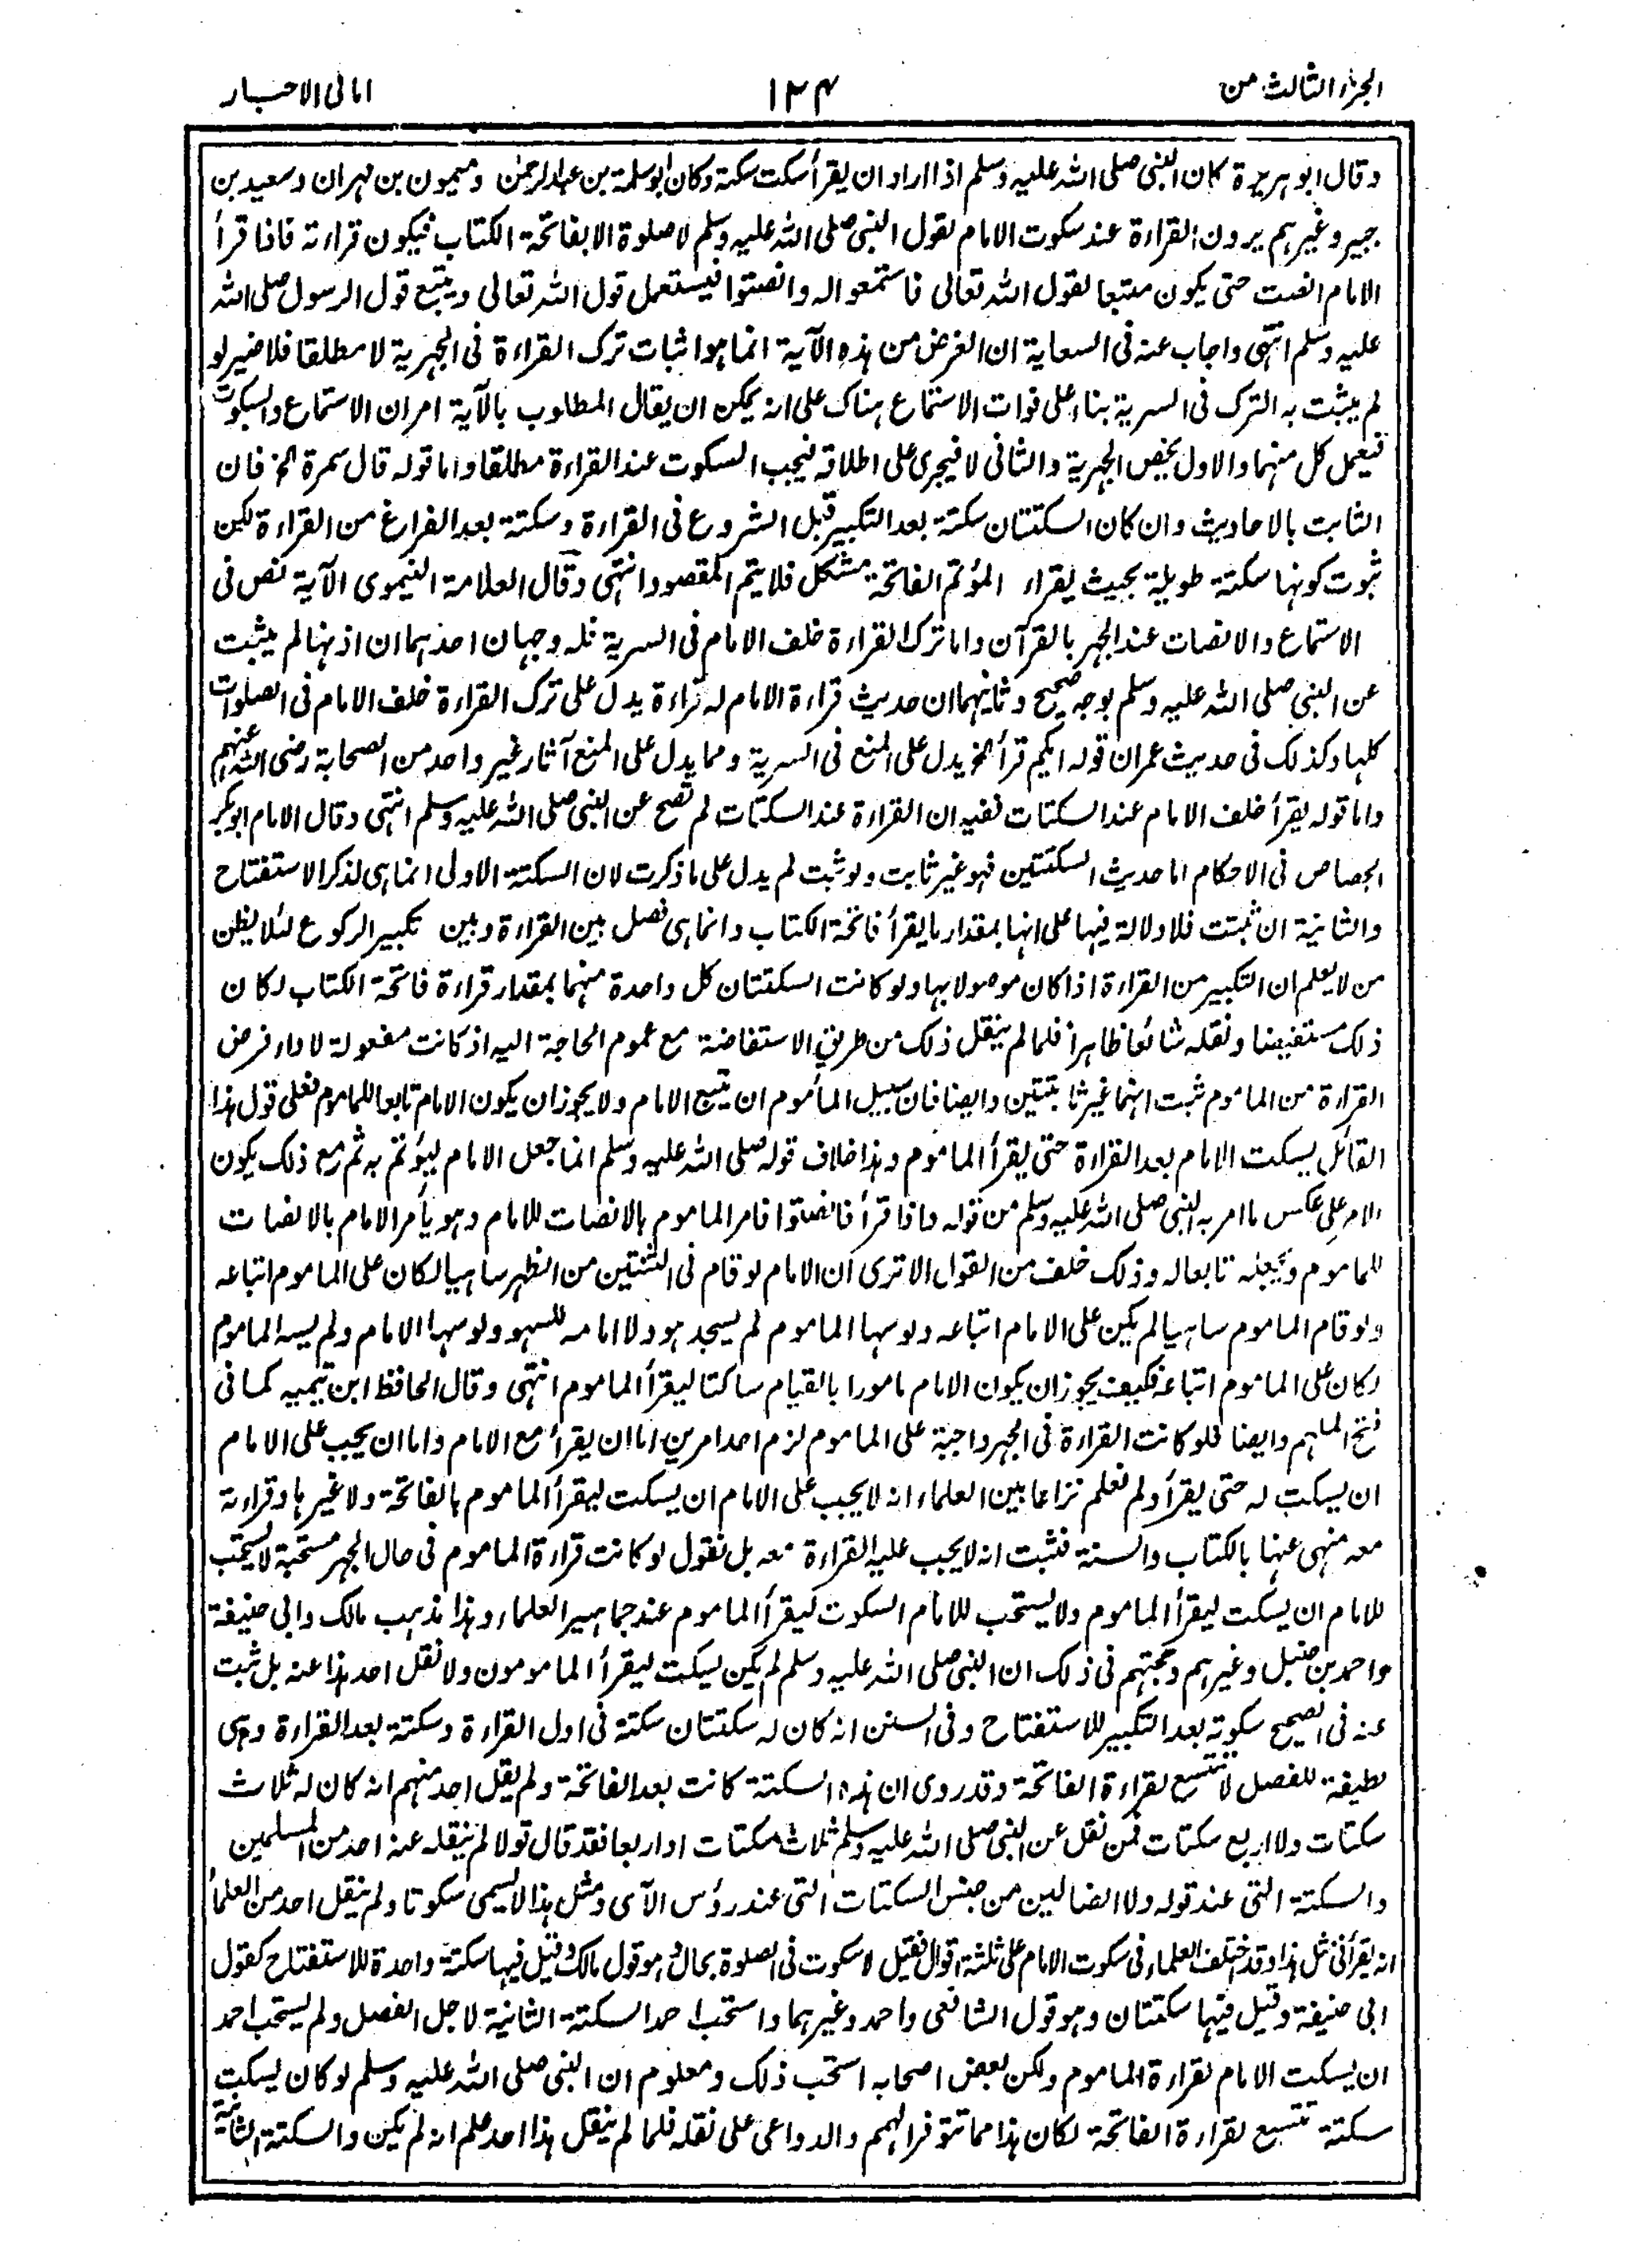 الجزء الثالث من
١٢٤
امانى الاحبار
وقال ابو هريرة كان النبى صلى الله عليه وسلم اذا اراد ان يقرأ سكت سكتة وكان ابو سلمة بن عبد الرحمن وميمون بن مهران وسعيد بن
جبير وغيرهم يرون القراءة عند سكوت الامام لقول النبى صلى الله عليه وسلم لا صلوة الا بفاتحة الكتاب فيكون قراءته فاذا قرأ
الامام انصت حتى يكون متبعا لقول الله تعالى فاستمعوا له وانصتوا فيستعمل قول الله تعالى ويتبع قول الرسول صلى الله
عليه وسلم انتهى واجاب عنه فى السعاية ان الغرض من هذه الآية انما هو اثبات ترك القراءة فى الجهرية لا مطلقا فلا ضير لو
لم يثبت به الترك فى السرية بناء على فوات الاستماع هناك على انه يمكن ان يقال المطلوب بالآية امران الاستماع والسكوت
فيعمل كل منهما والاول يخص الجهرية والثانى لا فيجرى على اطلاقه فيجب السكوت عند القراءة مطلقا واما قوله قال سمرة الخ فان
الثابت بالاحاديث وان كان السكتتان سكتة بعد التكبير قبل الشروع فى القراءة وسكتة بعد الفراغ من القراءة لكن
ثبوت كونها سكتة طويلة بحيث يقراء المؤتم الفاتحة مشكل فلا يتم المقصود انتهى وقال العلامة النيموى الآية نص فى
الاستماع والانصات عند الجهر بالقرآن واما ترك القراءة خلف الامام فى السرية فله وجهان احدهما ان اذنها لم يثبت
عن النبى صلى الله عليه وسلم بوجه صحيح وثانيهما ان حديث قراءة الامام له قراءة يدل على ترك القراءة خلف الامام فى الصلوات
كلها وكذلك فى حديث عمران قوله ايكم قرأ الخ يدل على المنع فى السرية ومما يدل على المنع آثار غير واحد من الصحابة رضى الله عنهم
واما قوله يقرأ خلف الامام عند السكتات ففيه ان القراءة عند السكتات لم تصح عن النبى صلى الله عليه وسلم انتهى وقال الامام ابو بكر
الجصاص فى الاحكام اما حديث السكتتين فهو غير ثابت ولو ثبت لم يدل على ما ذكرت لان السكتة الاولى انما هى لذكر الاستفتاح
والثانية ان ثبتت فلا دلالة فيها على انها بمقدار ما يقرأ فاتحة الكتاب وانما هى فصل بين القراءة وبين تكبير الركوع لئلا يظن
من لا يعلم ان التكبير من القراءة اذا كان موصولا بها ولو كانت السكتتان كل واحدة منهما بمقدار قراءة فاتحة الكتاب لكان
ذلك مستفيضا ونقله شائعا ظاهرا فلما لم ينقل ذلك من طريق الاستفاضة مع عموم الحاجة اليه اذ كانت مفعولة لاداء فرض
القراءة من الماموم ثبت انهما غير ثابتتين وايضا فان سبيل المأموم ان يتبع الامام ولا يجوز ان يكون الامام تابعا للماموم فعلى قول هذا
القائل يسكت الامام بعد القراءة حتى يقرأ الماموم وهذا خلاف قوله صلى الله عليه وسلم انما جعل الامام ليؤتم به ثم مع ذلك يكون
الامر على عكس ما امر به النبى صلى الله عليه وسلم من قوله واذا قرأ فانصتوا فامر الماموم بالانصات للامام وهو يأمر الامام بالانصات
للماموم ويجعله تابعا له وذلك خلف من القول الا ترى ان الامام لو قام فى الثنتين من الظهر ساهيا لكان على الماموم اتباعه
ولو قام الماموم ساهيا لم يكن على الامام اتباعه ولو سها الماموم لم يسجد هو ولا امامه للسهو ولو سها الامام ولم يسه الماموم
لكان على الماموم اتباعه فكيف يجوز ان يكون الامام مامورا بالقيام ساكتا ليقرأ الماموم انتهى وقال الحافظ ابن تيمية كما فى
فتح الملهم وايضا فلو كانت القراءة فى الجهر واجبة على الماموم لزم احد امرين اما ان يقرأ مع الامام واما ان يجب على الامام
ان يسكت له حتى يقرأ ولم نعلم نزاعا بين العلماء انه لا يجب على الامام ان يسكت ليقرأ الماموم بالفاتحة ولا غيرها وقراءته
معه منهى عنها بالكتاب والسنة فثبت انه لا يجب عليه القراءة معه بل نقول لو كانت قراءة الماموم فى حال الجهر مستحبة لاستحب
للامام ان يسكت ليقرأ الماموم ولا يستحب للامام السكوت ليقرأ الماموم عند جماهير العلماء وهذا مذهب مالك وابى حنيفة
واحمد بن حنبل وغيرهم وحجتهم فى ذلك ان النبى صلى الله عليه وسلم لم يكن يسكت ليقرأ المامومون ولا نقل احد هذا عنه بل ثبت
عنه فى الصحيح سكوته بعد التكبير للاستفتاح وفى السنن انه كان له سكتتان سكتة فى اول القراءة وسكتة بعد القراءة وهى
لطيفة للفصل لا تتسع لقراءة الفاتحة وقد روى ان هذه السكتة كانت بعد الفاتحة ولم يقل احد منهم انه كان له ثلاث
سكتات ولا اربع سكتات فمن نقل عن النبى صلى الله عليه وسلم ثلاث سكتات او اربعا فقد قال قولا لم ينقله عنه احد من المسلمين
والسكتة التى عند قوله ولا الضالين من جنس السكتات التى عند رؤس الآى ومثل هذا لا يسمى سكوتا ولم ينقل احد من العلماء
انه يقرأ فى مثل هذا وقد اختلف العلماء فى سكوت الامام على ثلثة اقوال فقيل لا سكوت فى الصلوة بحال وهو قول مالك وقيل فيها سكتة واحدة للاستفتاح كقول
ابى حنيفة وقيل فيها سكتتان وهو قول الشافعى واحمد وغيرهما واستحب احمد السكتة الثانية لاجل الفصل ولم يستحب احمد
ان يسكت الامام لقراءة الماموم ولكن بعض اصحابه استحب ذلك ومعلوم ان النبى صلى الله عليه وسلم لو كان يسكت
سكتة تتسع لقراءة الفاتحة لكان هذا مما تتوفر الهمم والدواعى على نقله فلما لم ينقل هذا احد علم انه لم يكن والسكتة الثانية